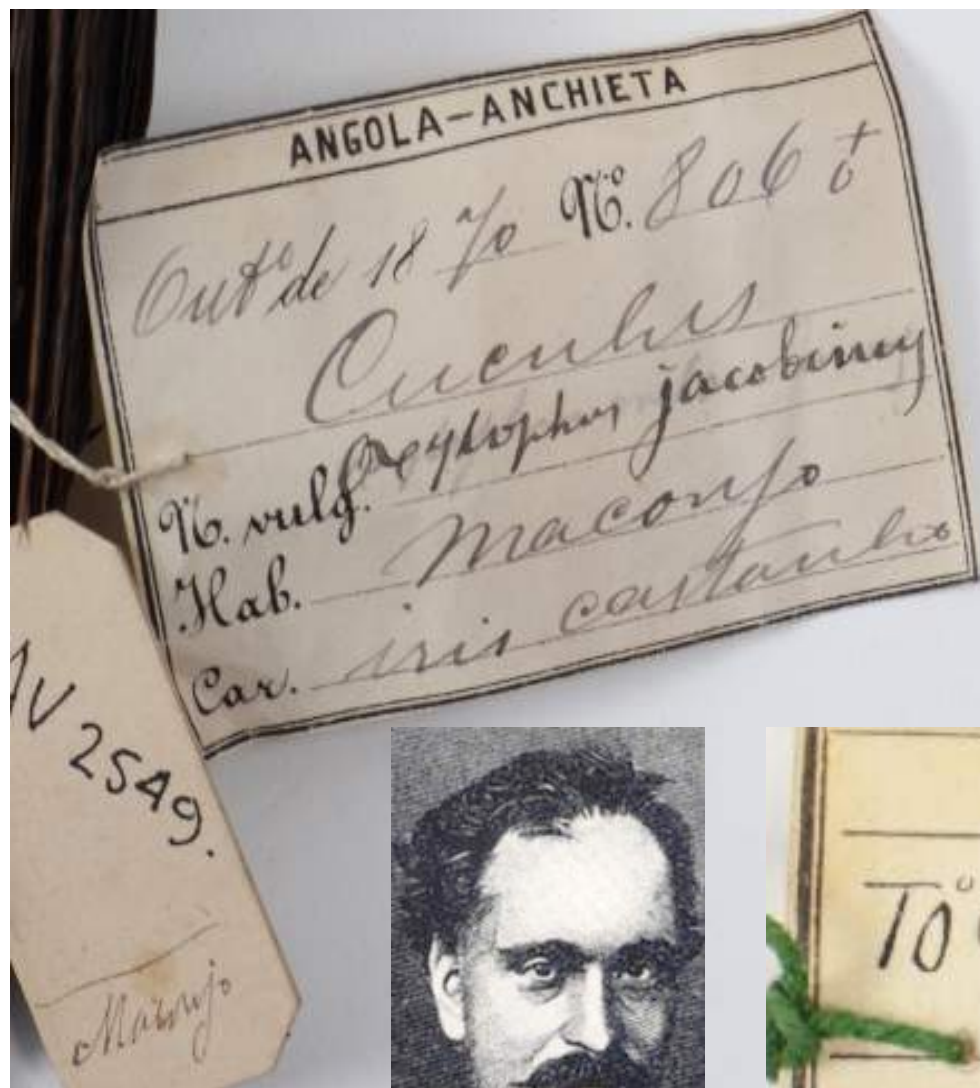 ANGOLA-ANCHIETA
Outº de 1870 Nº. 806
Cuculus
N. vulg. Oxylophus jacobinus
Hab. Maconjo
Car. iris castanho
AV 2549.
Maconjo
10º